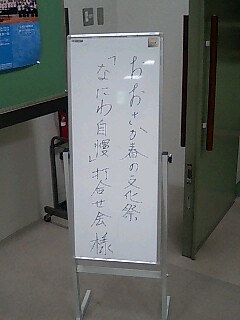 おおさか春の文化祭
「なにわ自慢」打合せ会様